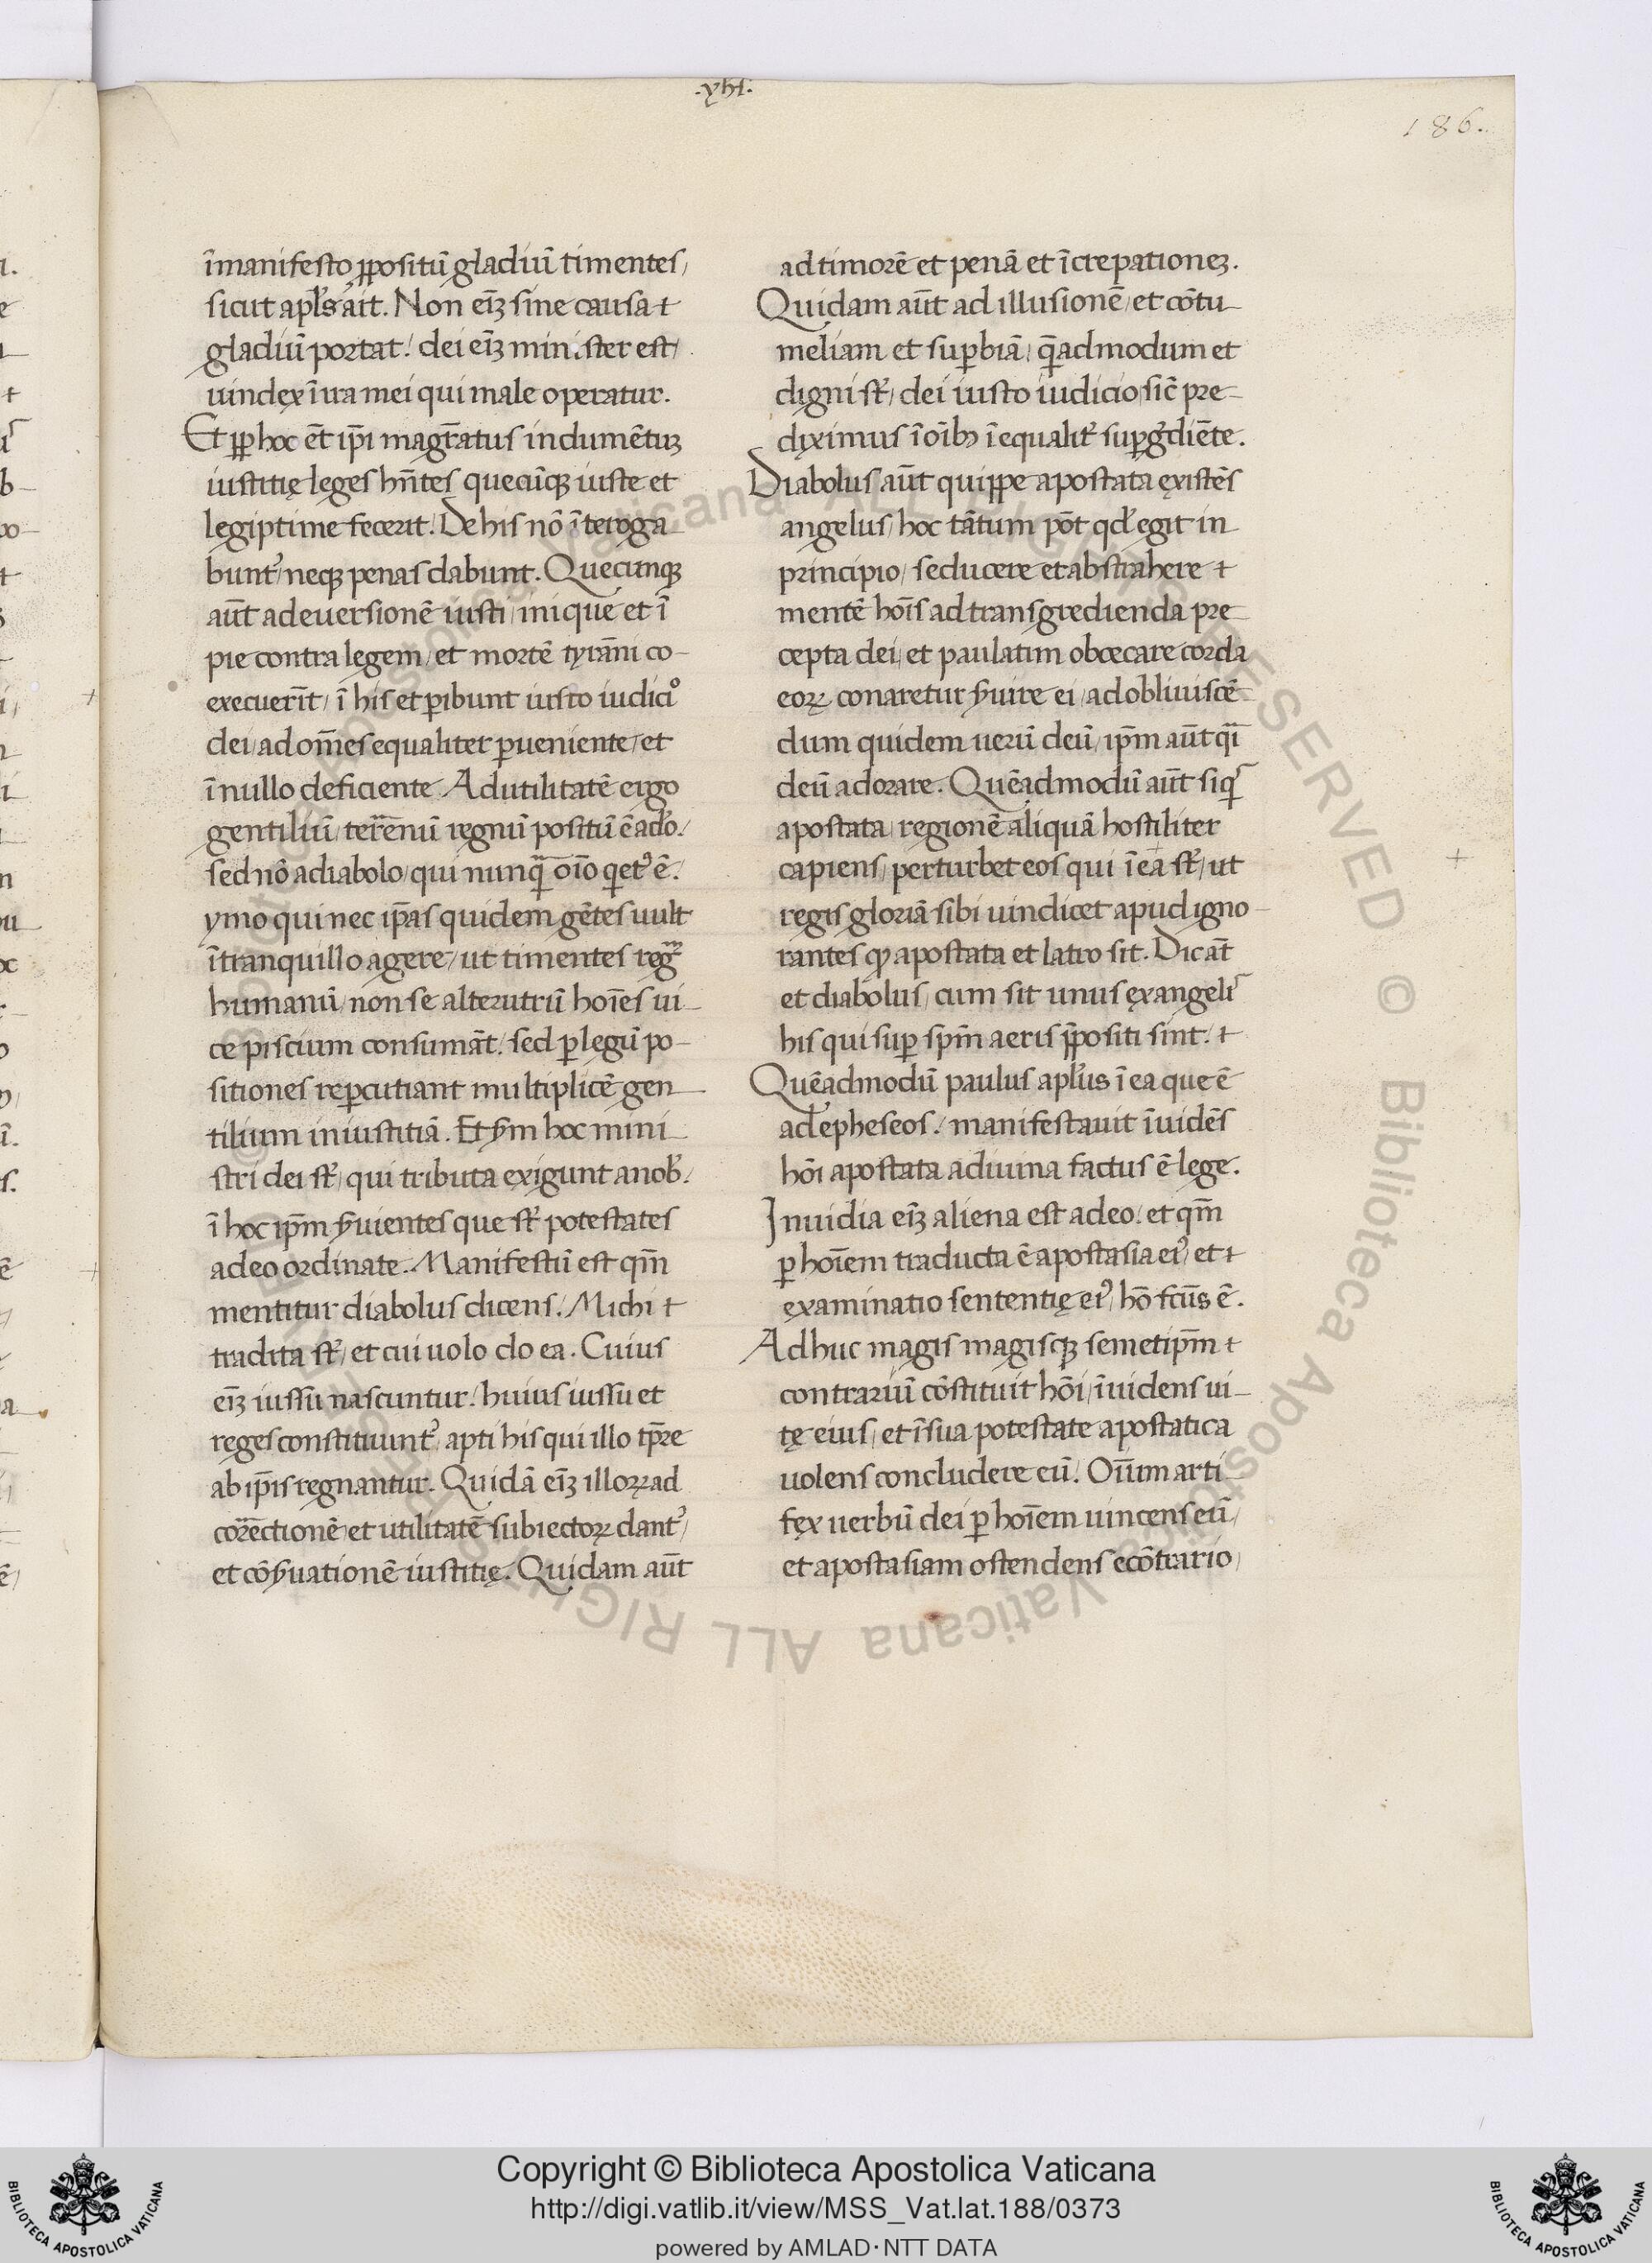 .xhi.
186.
ı̄manifesto ꝓpositū gladiū timentes/
sicut apl̄s ait. Non eı̄ꝫ sine causa ⁊
gladiū portat/ dei eı̄ꝫ minister est/
uindex ı̄ ira mei qui male operatur.
Et ꝓp hoc ēt ip̄i magr̄atus indumētuꝫ
iustitię leges hn̄tes quecūqꝫ iuste et
legiptime fecerit. De his nō ı̄teroga
bunt᷑/ neqꝫ penas dabunt. Quecunqꝫ
aūt ad euersionē iusti/ inique et ı̄
pie contra legem/ et mortē tyrāni co-
execuerı̄t/ ı̄ his et ꝑibunt iusto iudicio
dei/ ad om̄es equaliter ꝑueniente/ et
ı̄ nullo deficiente. Ad utilitatē ergo
gentiliū/ terēnū regnū positū ē a dō/
sed nō a diabolo/ qui nunqᷓ oı̄o qet᷒ ē.
ymo qui nec ip̄as quidem gētes uult
ı̄ tranquillo agere/ ut timentes regᷓ
humanū/ non se alterutrū hoı̄es ui-
ce piscium consumāt/ sed ꝑ legū po-
sitiones reꝑcutiant multiplicē gen
tilium iniustitiā. Et ẜm hoc mini
stri dei st᷑/ qui tributa exigunt a nob̄/
ı̄ hoc ip̄m ẜuientes que st᷑ potestates
a deo ordinate. Manifestū est qm̄
mentitur diabolus dicens/ Michi ⁊
tradita st᷑/ et cui uolo do ea. Cuius
eı̄ꝫ iussu nascuntur/ huius iussu et
reges constituunt᷑/ apti his qui illo tp̄re
ab ip̄is regnantur. Quidā eı̄ꝫ illoꝝ ad
corēctionē et utilitatē subiectoꝝ dant᷑/
et cōẜuationē iustitię. Quidam aūt
ad timorē et penā et ı̄crepationeꝫ.
Quidam aūt ad illusionē/ et cōtu
meliam et suꝑbiā/ qē̄admodum et
digni st᷑/ dei iusto iudicio/ sic̄ pre-
diximus ı̄ oı̄bꝫ ı̄equalit᷑ suꝑgdiēte.
Diabolus aūt quippe apostata existēs
angelus/ hoc tātum pōt qd̓ egit in
principio/ seducere et abstrahere ⁊
mentē hoı̄s ad transgredienda pre
cepta dei/ et paulatim obcecare corda
eoꝝ conaretur ẜuire ei/ ad obliuiscē
dum quidem uerū deū/ ip̄m aūt qᷓı
deū adorare. Quēadmodū aūt siq᷒
apostata/ regionē aliquā hostiliter
capiens/ perturbet eos qui ı̄ ea st᷑/ ut
regis gloriā sibi uindicet apud igno-
rantes ꝙ apostata et latro sit. Dic āt
et diabolus/ cum sit unus ex angel᷒
his qui suꝑ sp̄m aeris p̄positi sint/ ⁊
Quēadmodū paulus apl̄us ı̄ ea que ē
ad epheseos/ manifestauit ı̄uidēs
hōi apostata a diuina factus ē lege.
Inuidia eı̄ꝫ aliena est a deo/ et qm̄
ꝑ hoı̄em traducta ē apostasia ei᷒/ et ⁊
examinatio sententię ei᷒/ hō fcūs ē.
Adhuc magis magisqꝫ semetip̄m ⁊
contrariū cōstituit hōi/ ı̄uidens ui-
tę eius/ et ı̄ sua potestate apostatica
uolens concludere eū. Oı̄um arti-
fex uerbū dei ꝑ hoı̄em uincens eū/
et apostasiam ostendens ecōtrario/
Copyright © Biblioteca Apostolica Vaticana
http://digi.vatlib.it/view/MSS_Vat.lat.188/0373
powered by AMLAD·NTT DATA
BIBLIOTECA APOSTOLICA VATICANA
BIBLIOTECA APOSTOLICA VATICANA